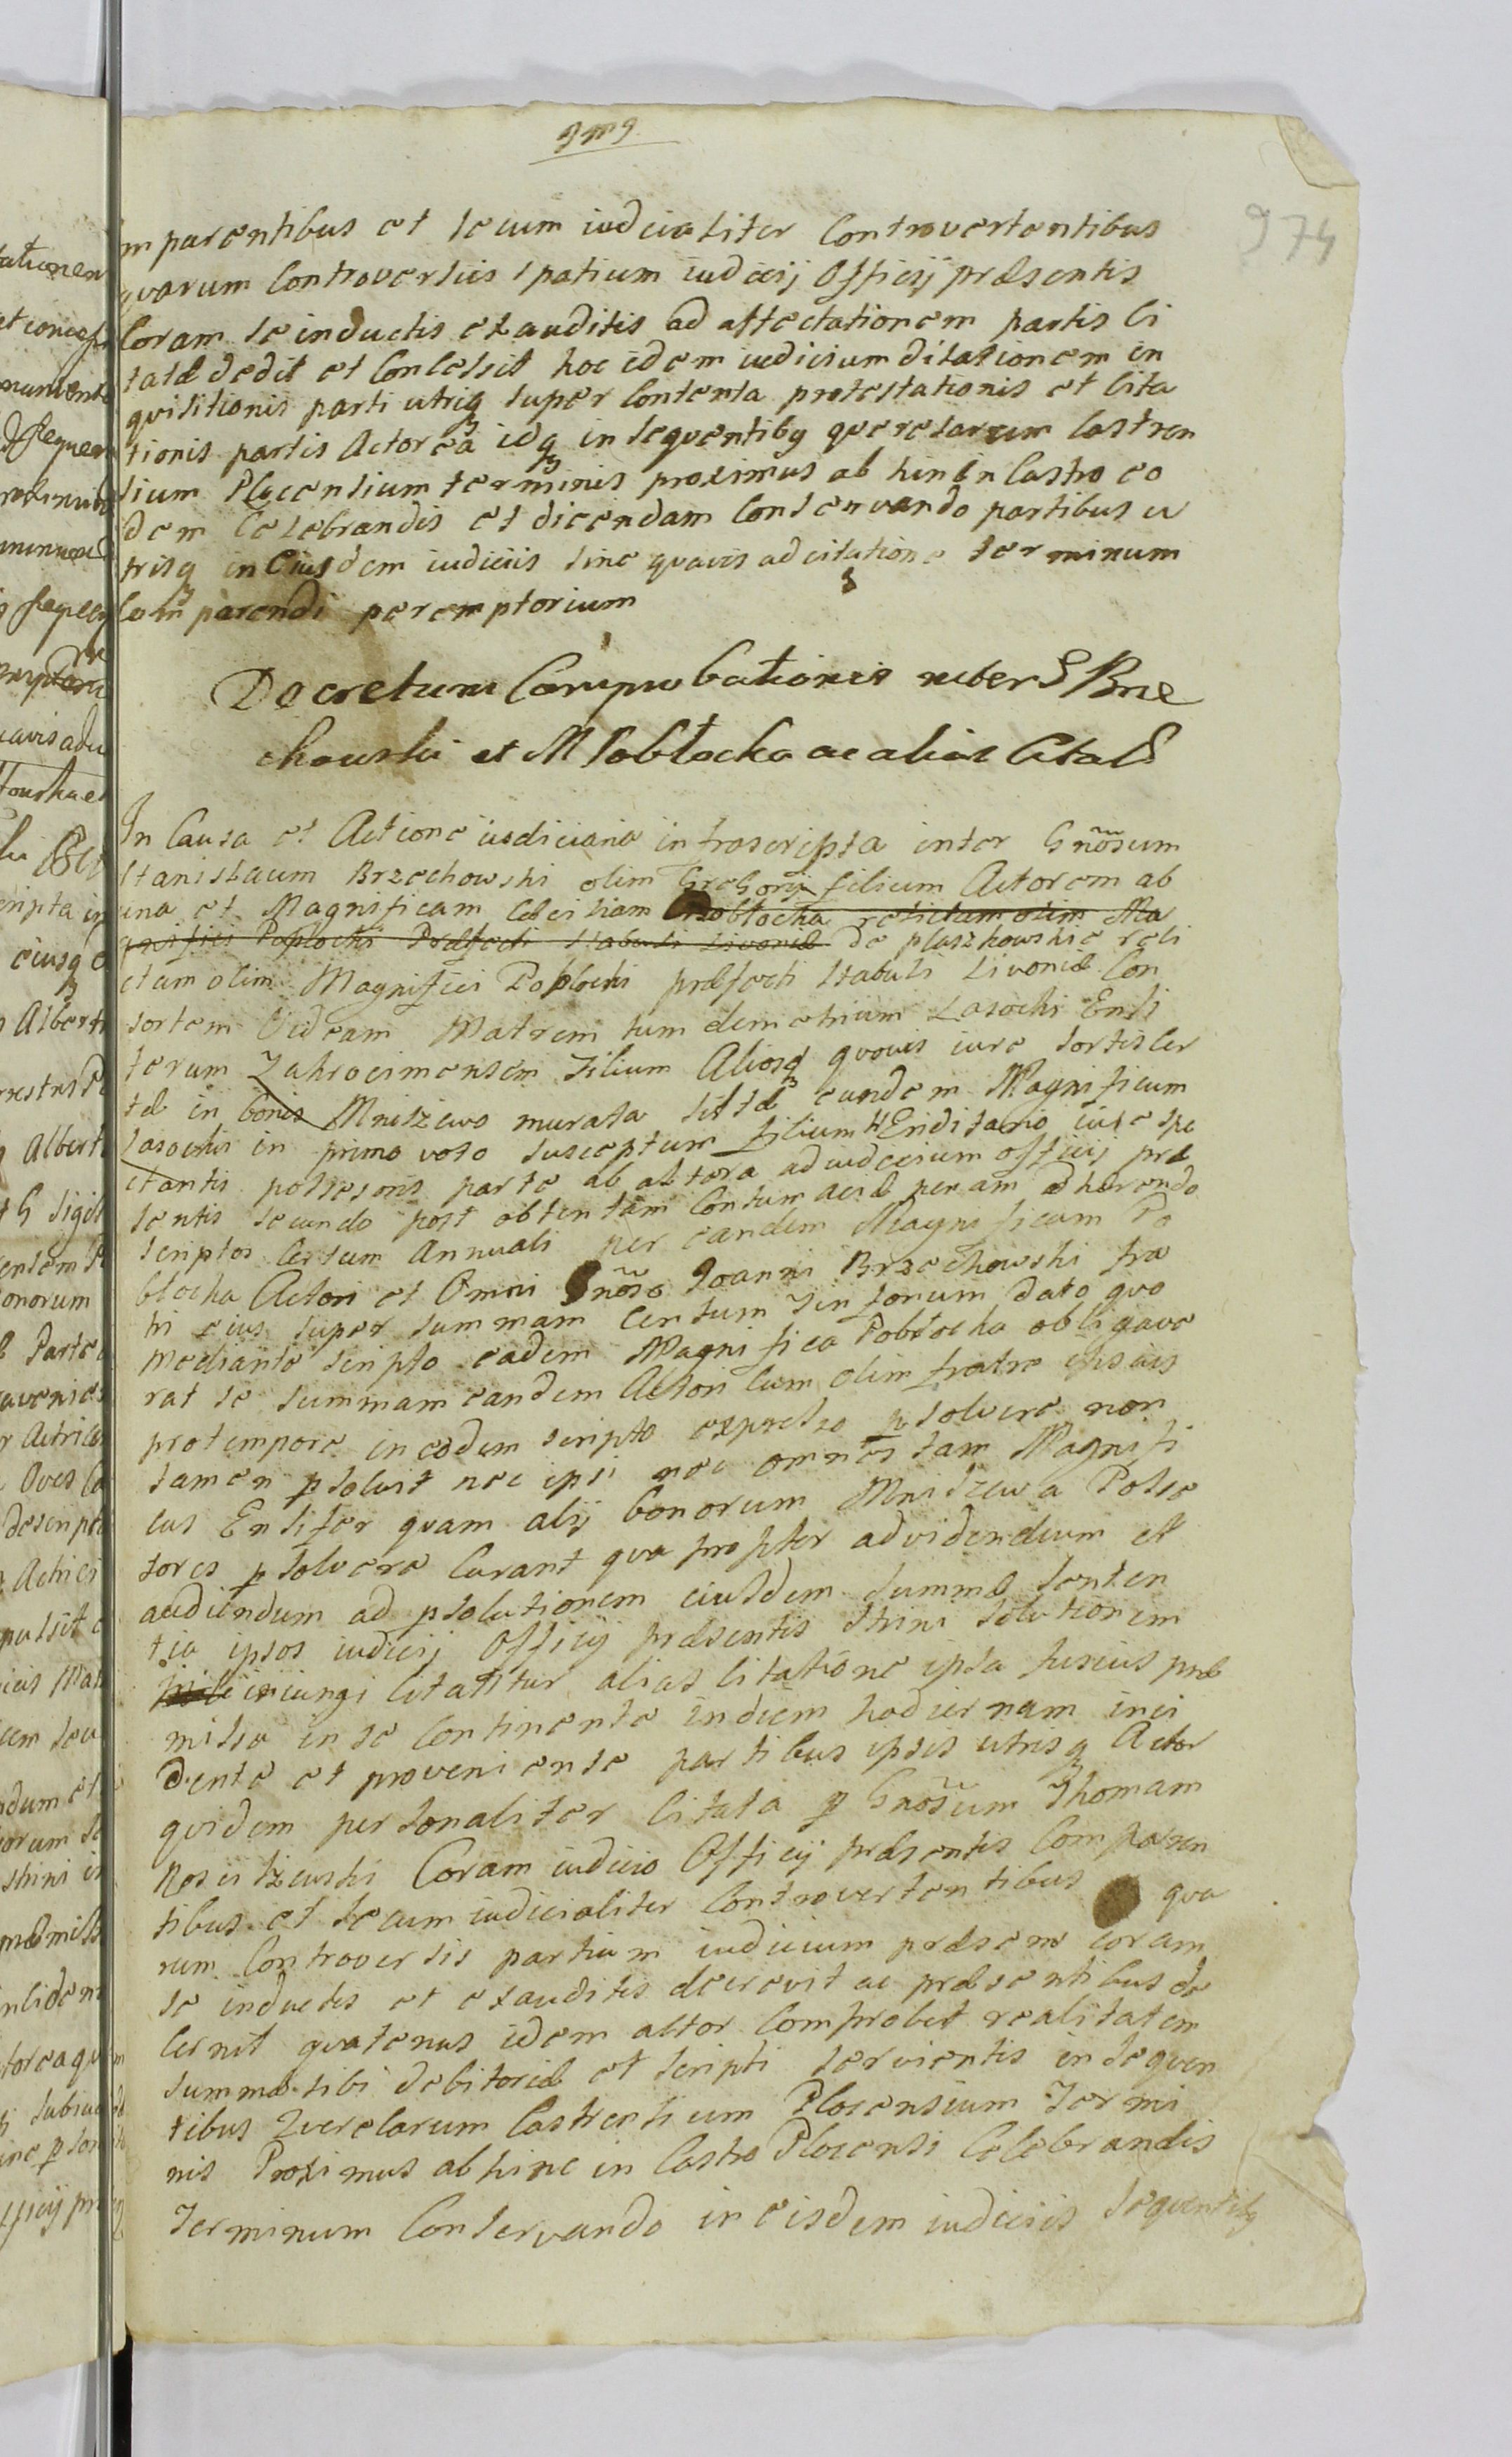 974
mparentibus et secum iudicialiter Controvertentibus
quarum Controversiis spatium iudicij Officij præsentis
Coram se inductis exauditis ad affectationem partis Ci
tatæ dedit et Concessit hoc idem iudicium dilationem in
quisitionis parti utriq super Contenta protestationis et Cita
tionis partis Actorea idq in sequentibq querelarum Castren
sium Plocensium terminis proximus ab hinc in Castro eo
dem Celebrandis et dicendam Conservando partibus u
trisq in Eiusdem iudiciis sine quavis adcitatione terminum
Comparendi peremptorium
Decretum Comprobationis inter G Brze
chowski et M Pobłocka ac alios Citatos
In Causa et Actione iudiciaria infrascripta inter Gnosum
Stanislaum Brzechowski olim Gregorij filium Actorem ab
una et Magnificam Ceciliam Pobłocka relictam olim Ma
gnifici Poplocki Præfecti Stabuli Livoniæ de Plaszkowskie reli
ctam olim Magnifici Poplocki præfecti Stabuli Livoniæ Con
sortem Viduam Matrem tum demetrium Lasocki Ensi
ferum Zakrocimensem Filium Aliosq quovis iure sortis Cer
tæ in bonis Mniszewo murata sittæ eundem Magnificum
Lasocki in primo voto susceptum filium Hæriditario iure spe
ctantis possesoris parte ab altera ad iudicium officij præ
sentis secundo post obtentam Contumaciæ penam adhærendo
scriptos Certum Annuali per eandem Magnificam Po
blocka Actori et Omni Gnoso Joanni Brzechowski fra
tri eius super summam Centum Tinfonum Dato quo
Mediante scripto eadem Magnifica Pobłocka obligave
rat se summam eandem Actori Cum olim fratre ipsius
protempore in eodem scripto expresso psolvere non
tamen psolvit nec ipsi nec omnes tam Magnifi
cus Ensifer quam alij bonorum Mniszewa Posse
sores psolvere Curant qua propter ad videndum et
audiendum ad psolutionem eiusdem summæ senten
tia ipsos iudicij Officij præsentis strini solutionem
iniungi Citatitur alias Citatione ipsa fusius præ
missa in se Continente in diem hodiernam inci
dente et proveniente partibus ipsis utrisq Actor
quidem personaliter Citata p Gnosum Thomam
Rosciszewski Coram iudicio Officij præsentis Comparen
tibus et secum iudicialiter Controvertentibus qua
rum Controversis partium iudicium præsens coram
se inductis et exauditis decrevit ac præsentibus de
cernit quatenus idem actor Comprobet realitatem
summæ sibi debitoriæ et scripti servientis in sequen
tibus Querelarum Castrensium Plocensium Termi
nis Proximus abhinc in Castro Plocensi Celebrandis
Terminum Conservando in eisdem iudiciis sequentibq